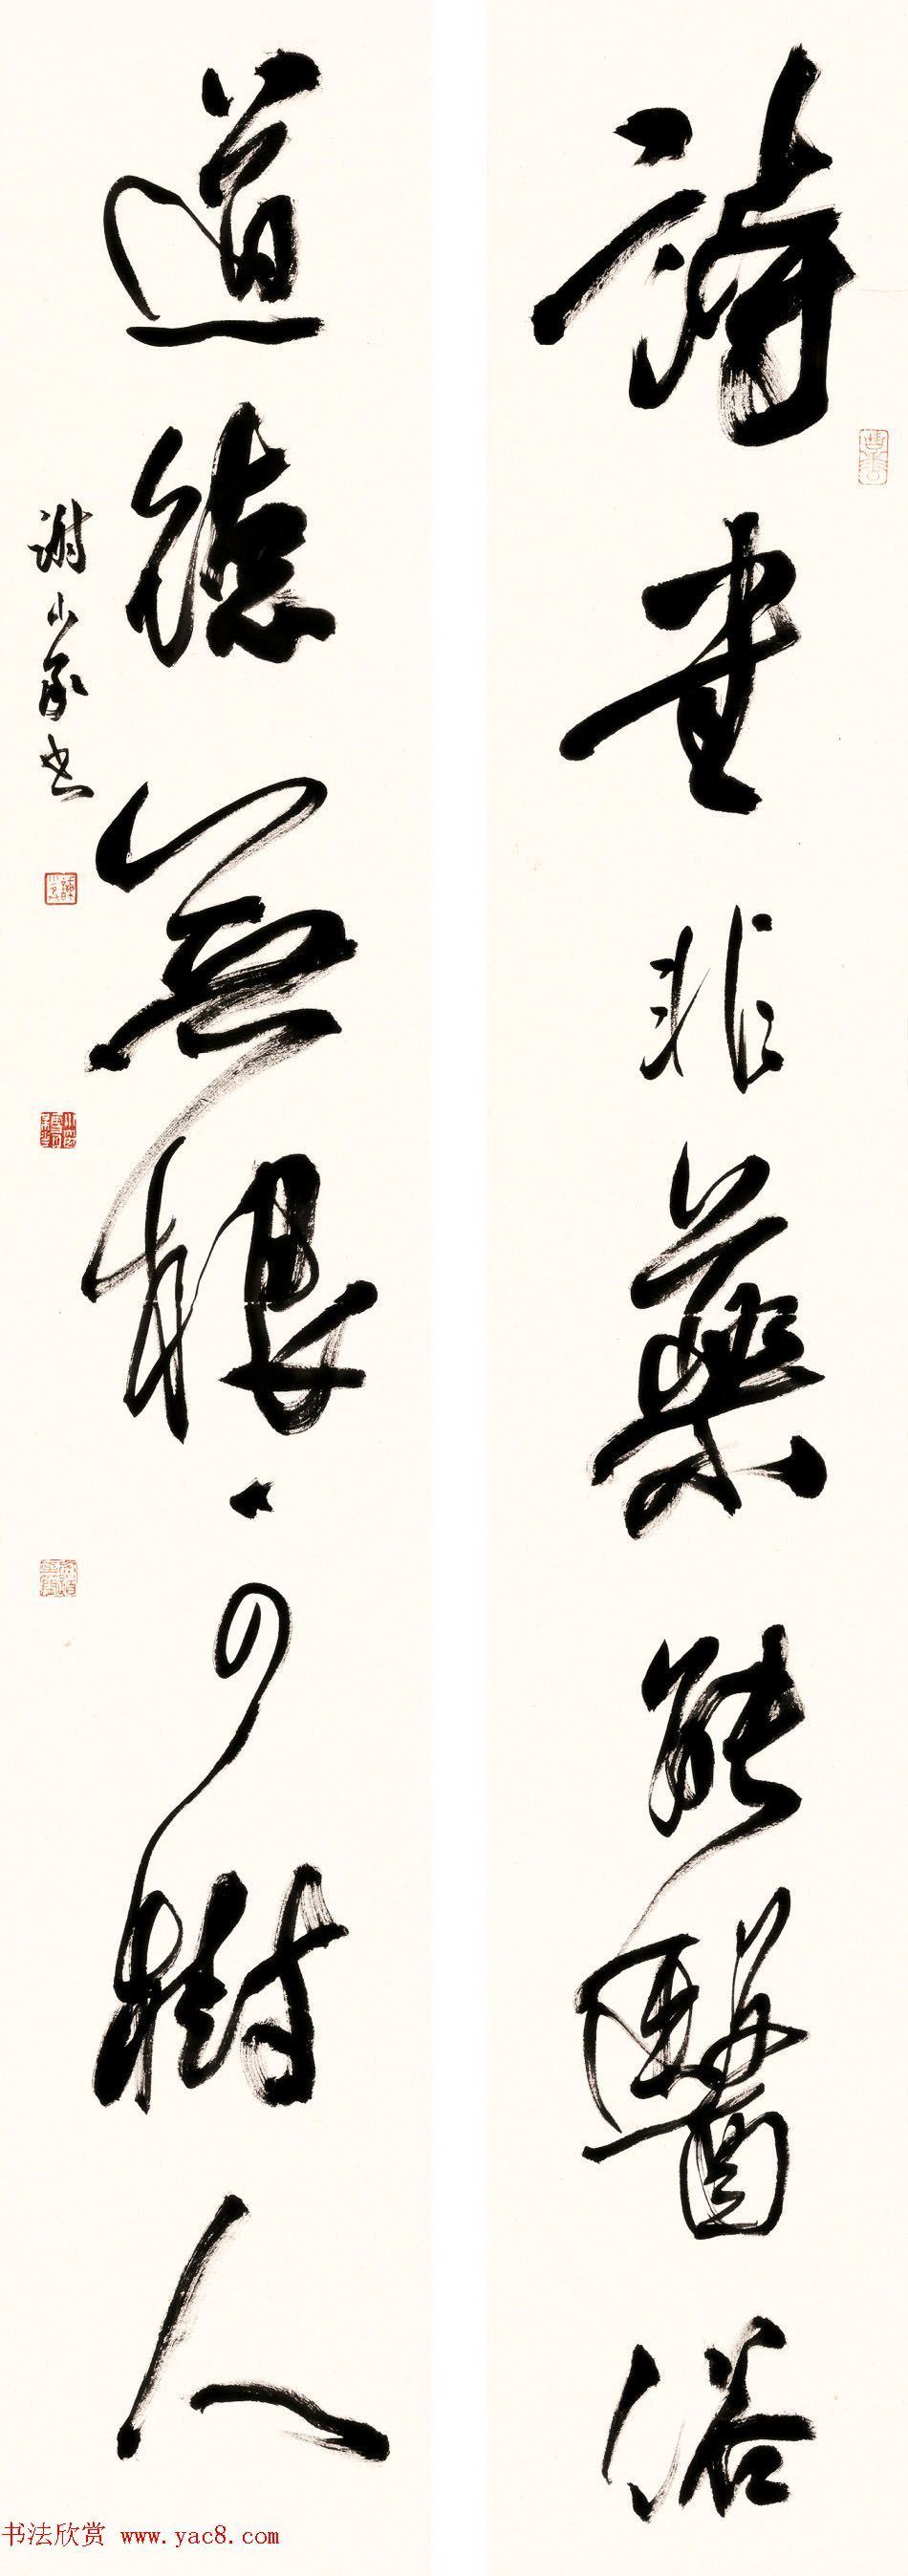 詩書非藥能醫俗
道德無根可樹人
謝小家書
书法欣赏 www.yac8.com